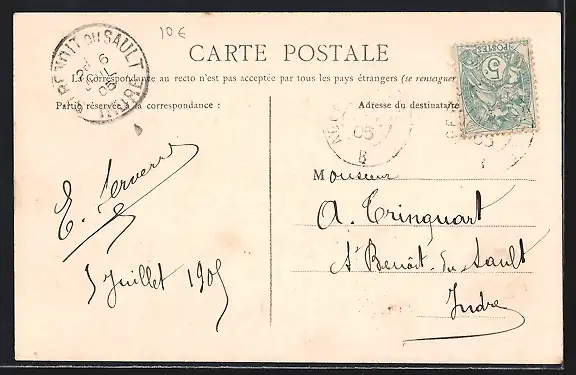 10€
CARTE POSTALE
La Correspondance au recto n'est pas acceptée par tous les pays étrangers (se renseigner
Partie réservée à la correspondance :
Adresse du destinataire
BENOIT DU SAULT
6
05
INDRE
POSTES
5
05
B
E. Servere
5 Juillet 1905
Monsieur
A. Tringuart
St Benoît-du-Sault
Indre